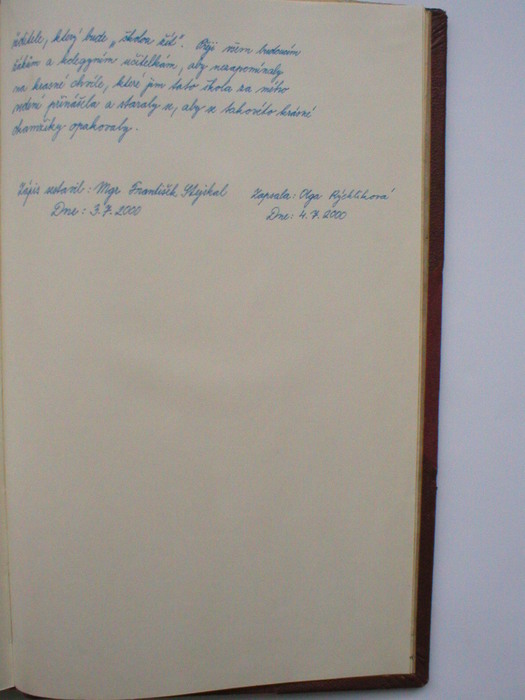 ředitele, který bude „školou žít“. Přeji všem budoucím
žákům a kolegyním učitelkám, aby nezapomínaly
na krásné chvíle, které jim tato škola za mého
vedení přinášela a staraly se, aby se takovéto krásné
okamžiky opakovaly.
Zápis sestavil: Mgr. František Stejskal
Zapsala: Olga Rychlíková
Dne: 3. 7. 2000
Dne: 4. 7. 2000